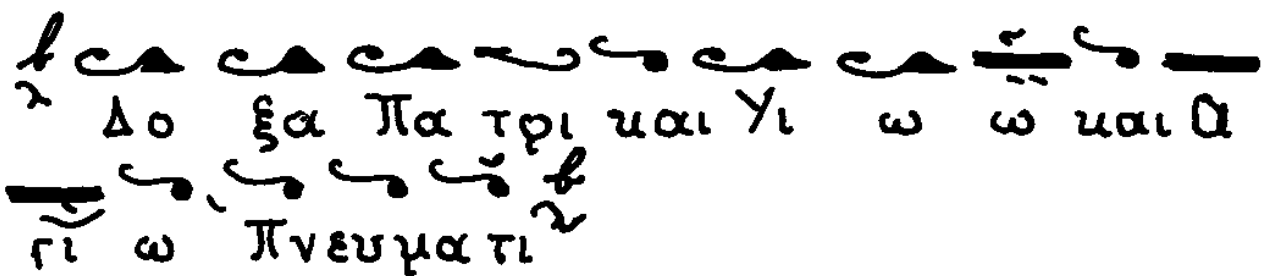 Δο ξα Πα τρι και Υι ω ω και Α
γι ω Πνευμα τι